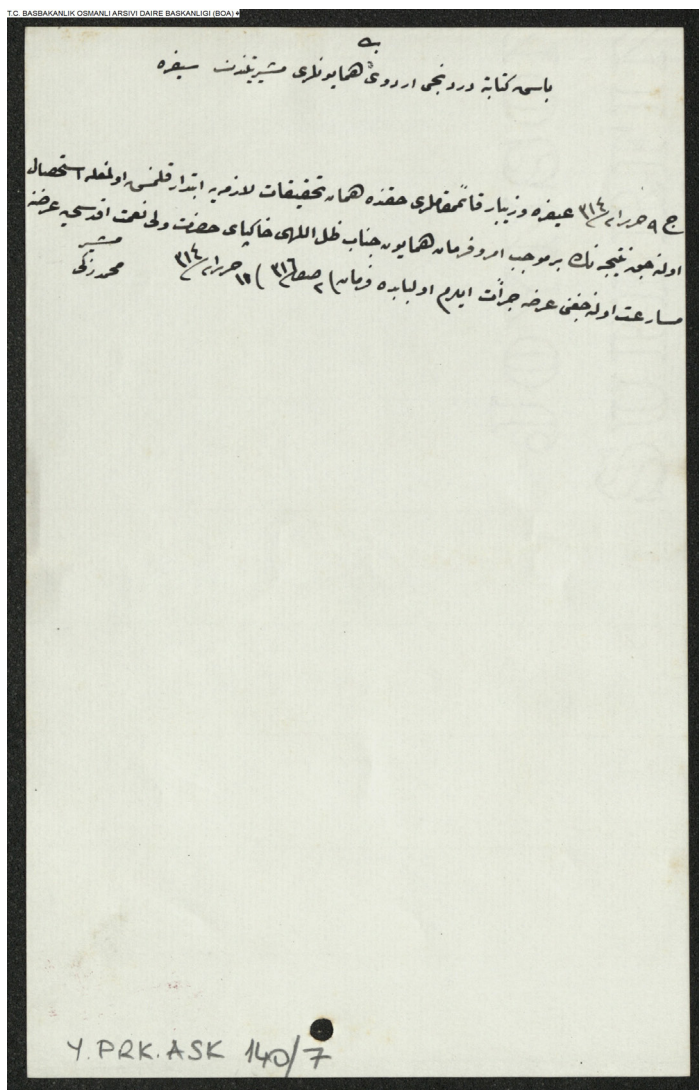 T.C. BASBAKANLIK OSMANLI ARSIVI DAIRE BASKANLIGI (BOA)
باش كتابته دردنجی اردوی همایونلری مشیریتندن شیفره
ج ٩ حزیران ٣١٤ عقره و زیبار قائممقاملری حقنده همان تحقیقات لازمه‌یه ابتدار قلنمش اولمغله استحصال
اوله‌جق نتیجه‌نك بر موجب امر و فرمان همایون جناب ظل اللهی خاكپای حضرت ولی نعمت اقدسی‌یه عرضنه
مسارعت اوله‌جغنی عرضه جرأت ایلرم اولبابده فرمان ٢ صفر ٣١٦ ١٠ حزیران ٣١٤
مشیر
محمد زكی
Y.PRK.ASK 140/7